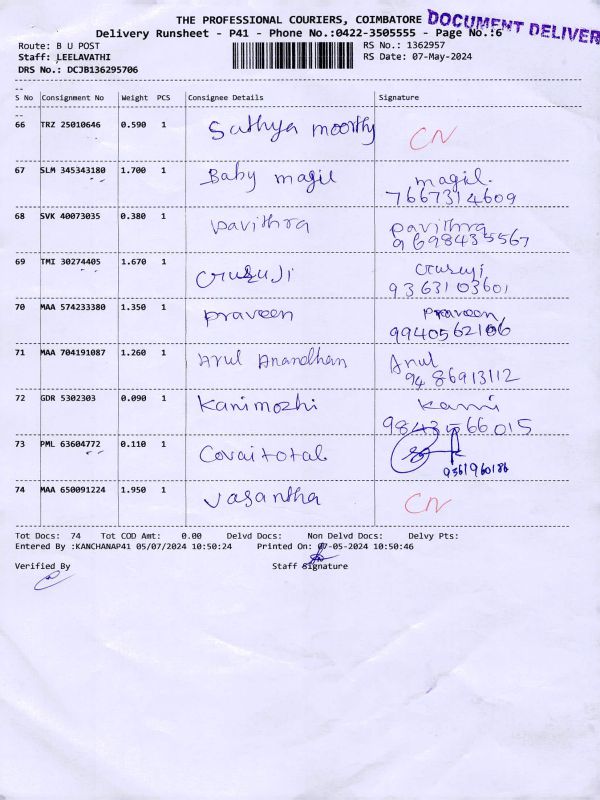 THE PROFESSIONAL COURIERS, COIMBATORE
DOCUMENT DELIVER
Delivery Runsheet - P41 - Phone No.:0422-3505555 - Page No.:6
Route: B U POST RS No.: 1362957
Staff: LEELAVATHI RS Date: 07-May-2024
DRS No.: DCJB136295706
--
S No Consignment No Weight PCS Consignee Details Signature
66 TRZ 25010646 0.590 1 Sathya moorthy CN
67 SLM 345343180 1.700 1 Baby magil magil.
7667314609
68 SVK 40073035 0.380 1 pavithra pavithra
9698435567
69 TMI 30274405 1.670 1
9363103601
70 MAA 574233380 1.350 1 praveen praveen
9940562106
71 MAA 704191087 1.260 1 Arul Anandhan Arul
9486913112
72 GDR 5302303 0.090 1 Kanimozhi Kani
9843566015
73 PML 63604772 0.110 1 Covai total
9361960186
74 MAA 650091224 1.950 1 Vasantha CN
Tot Docs: 74 Tot COD Amt: 0.00 Delvd Docs: Non Delvd Docs: Delvy Pts:
Entered By :KANCHANAP41 05/07/2024 10:50:24 Printed On: 07-05-2024 10:50:46
Verified By Staff Signature